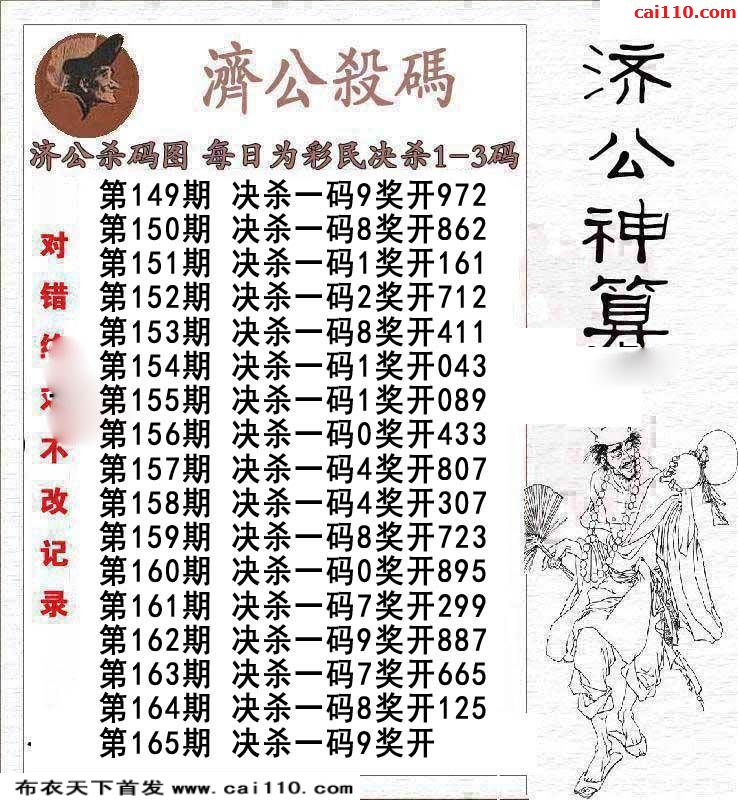 cai110.com
濟公殺碼
济公杀码图 每日为彩民决杀1-3码
第149期 决杀一码9奖开972
第150期 决杀一码8奖开862
第151期 决杀一码1奖开161
第152期 决杀一码2奖开712
第153期 决杀一码8奖开411
第154期 决杀一码1奖开043
第155期 决杀一码1奖开089
第156期 决杀一码0奖开433
第157期 决杀一码4奖开807
第158期 决杀一码4奖开307
第159期 决杀一码8奖开723
第160期 决杀一码0奖开895
第161期 决杀一码7奖开299
第162期 决杀一码9奖开887
第163期 决杀一码7奖开665
第164期 决杀一码8奖开125
第165期 决杀一码9奖开
对错 不改记录
济公神算
布衣天下首发 www.cai110.com